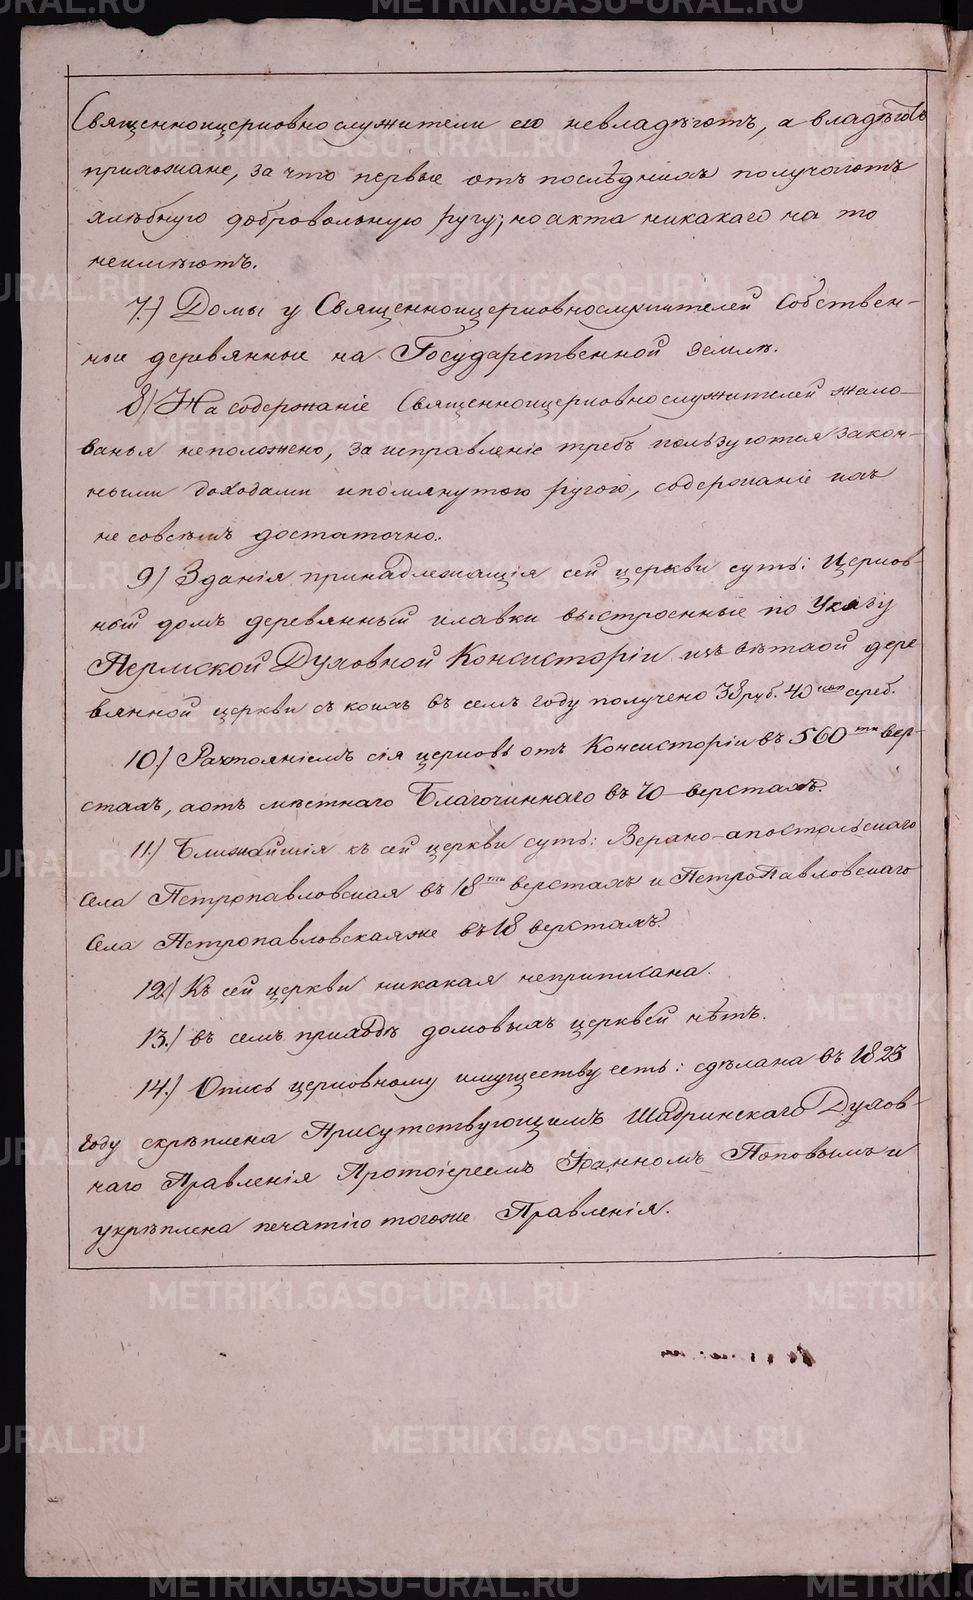 Священноицерковнослужители ею невладѣютъ, а владѣютъ
прихожане, за что первые отъ послѣднихъ получаютъ
хлѣбную добровольную ругу; но акта никакаго на то
неимѣютъ.
7.) Домы у Священноицерковнослужителей собствен-
ные деревянные на Государственной землѣ.
8) На содержаніе Священноицерковнослужителей жало-
ванья неположено, за исправленіе требъ пользуются закон-
ными доходами ипомянутою ругою, содержаніе ихъ
не совсѣмъ достаточно.
9) Зданія принадлежащія сей церкви суть: Церков-
ный домъ деревянный илавки выстроенные по Указу
Пермской Духовной Консисторіи изъ вѣтхой дере
вянной церкви съ коихъ въ семъ году получено 38 руб. 40 коп сереб.
10.) Разтояніемъ сія церковь отъ Консисторіи въ 560ти вер-
стахъ, аотъ мѣстнаго Благочиннаго въ 70 верстахъ.
11.) Ближайшія къ сей церкви суть: Верхно-апостольскаго
села Петропавловская въ 18ти верстахъ и Петропавловскаго
села Петропавловскаяже въ 18 верстахъ.
12.) Къ сей церкви никакая неприписана.
13.) въ семъ приходѣ домовыхъ церквей нѣтъ.
14.) Опись церковному имуществу есть: сдѣлана въ 1823
году скрѣплена Присутствующимъ Шадринскаго Духов-
наго Правленія Протоіереемъ Іоанномъ Поповымъ и
укрѣплена печатію тогоже Правленія.
METRIKI.GASO-URAL.RU